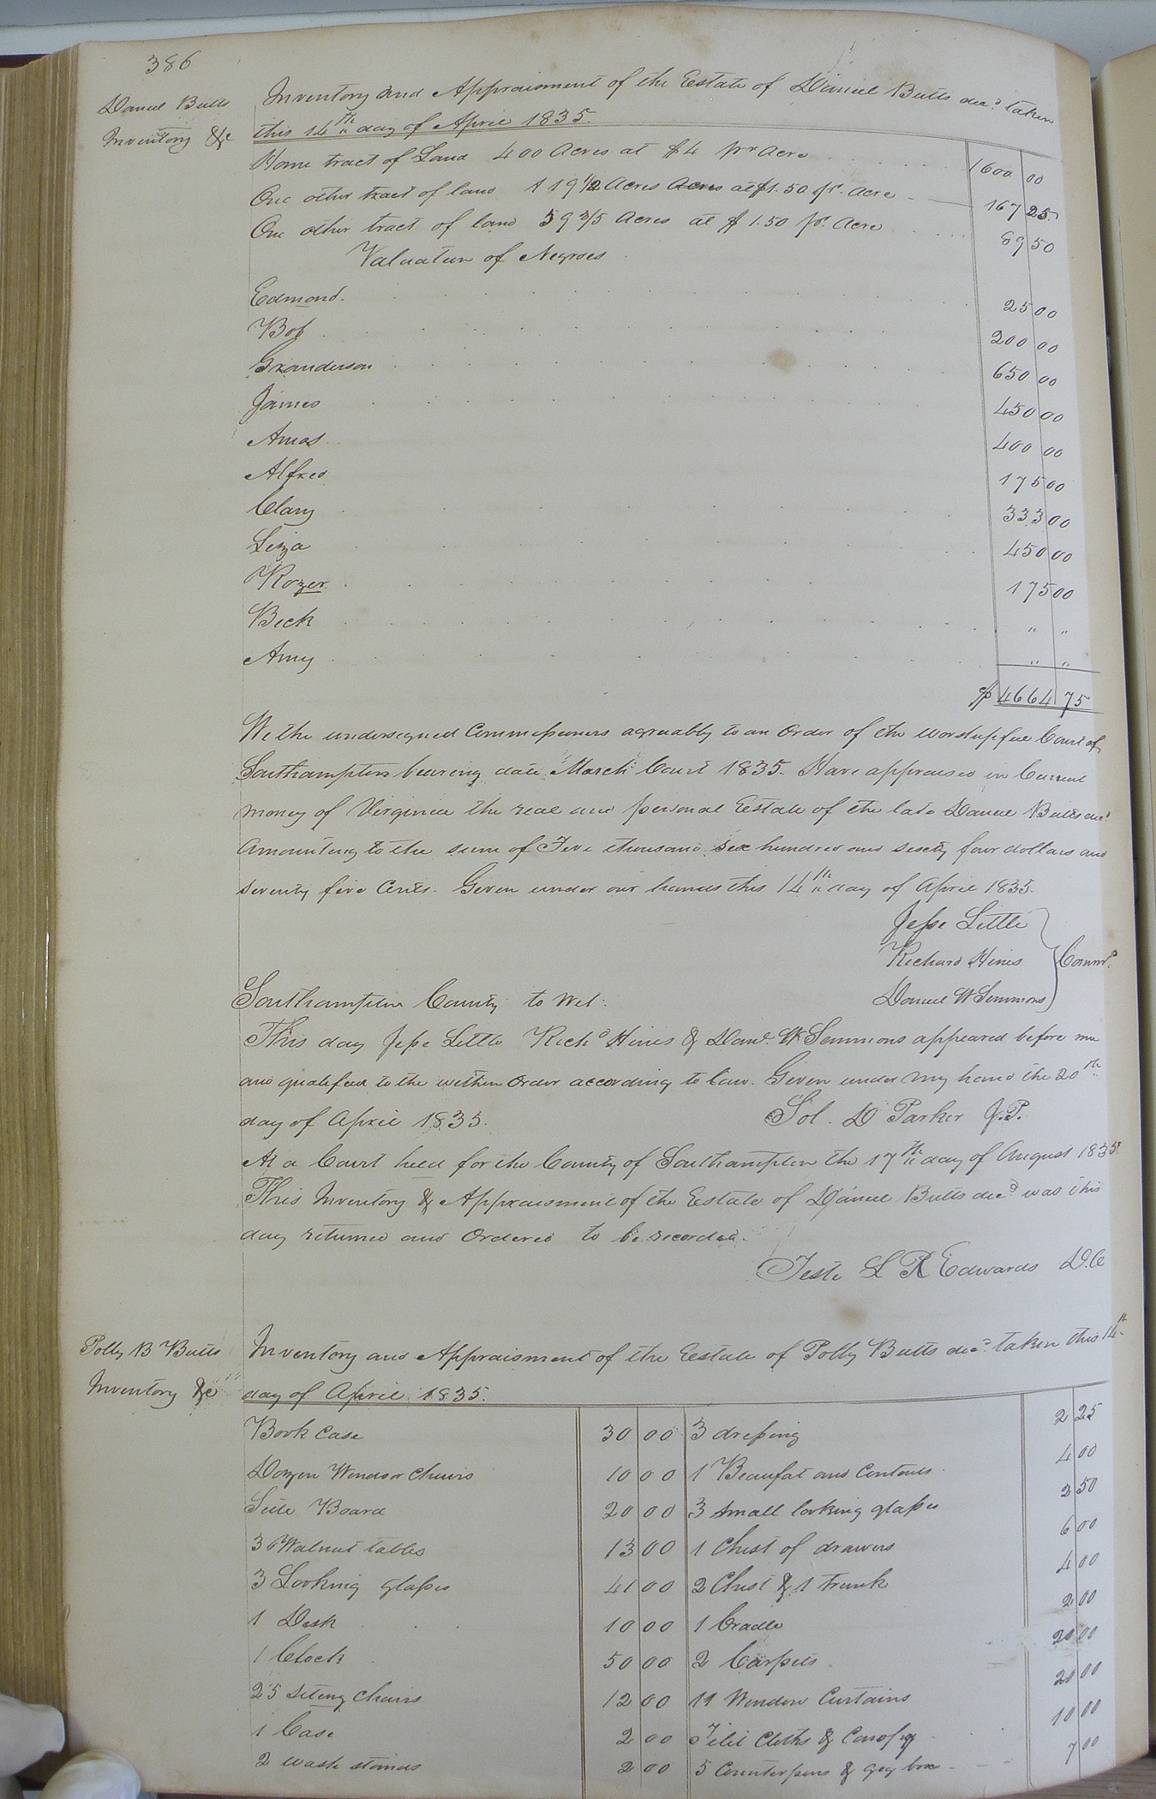 386
Daniel Butts
Inventory &c
Inventory and Appraisment of the Estate of Daniel Butts decd. taken
this 14th day of April 1835.
Home tract of Land 400 Acres at $4 pr Acre 1600 00
One other tract of land 119 1/2 Acres Acres at $1.50 pr. Acre 167 25
One other tract of land 59 3/5 Acres at $1.50 pr. Acre 89 50
Valuation of Negroes
Edmond. 25 00
Bob 200 00
Granderson 650 00
James 450 00
Amos 400 00
Alfred 175 00
Clary 333 00
Liza 450 00
Rozer 175 00
Beck " "
Amy " "
$4664 75
We the undersigned Commissioners agreuably to an Order of the worshipful Court of
Southampton bearing date March Court 1835. Have appraised in Current
money of Virginia the real and personal Estate of the late Daniel Butts decd
Amounting to the sum of Five thousand six hundred and sixty four dollars and
seventy five Cents. Given under our hands this 14th day of April 1835.
Jesse Little
Richard Hines Comms.
Daniel W Simmons
Southampton County to Wit:
This day Jesse Little Richd Hines & Danl. W Simmons appeared before me
and qualified to the within Order according to law. Given under my hand the 20th
day of April 1835. Sol. D Parker J.P.
At a Court held for the County of Southampton the 17th day of August 1835
This Inventory & Appraisment of the Estate of Daniel Butts decd was this
day returned and Ordered to be recorded.
Teste L R Edwards D.C
Polly B Butts
Inventory &c
Inventory and Appraisment of the Estate of Polly Butts decd. taken this 14th
day of April 1835.
Book Case 30 00 3 dressing 2 25
Dozen Windsor Chairs 10 00 1 Beaufat and Contents 4 00
Side Board 20 00 3 small looking glasses 2 50
3 Walnut tables 13 00 1 Chest of drawers 6 00
3 Looking glasses 41 00 2 Chest & 1 trunk 4 00
1 Desk 10 00 1 Cradle 2 00
1 Clock 50 00 2 Carpets 20 00
25 Siteng Chairs 12 00 11 Window Curtains 20 00
1 Case 2 00 Cloths & Canopy 10 00
2 wash stands 2 00 5 Counterpins & box 7 00